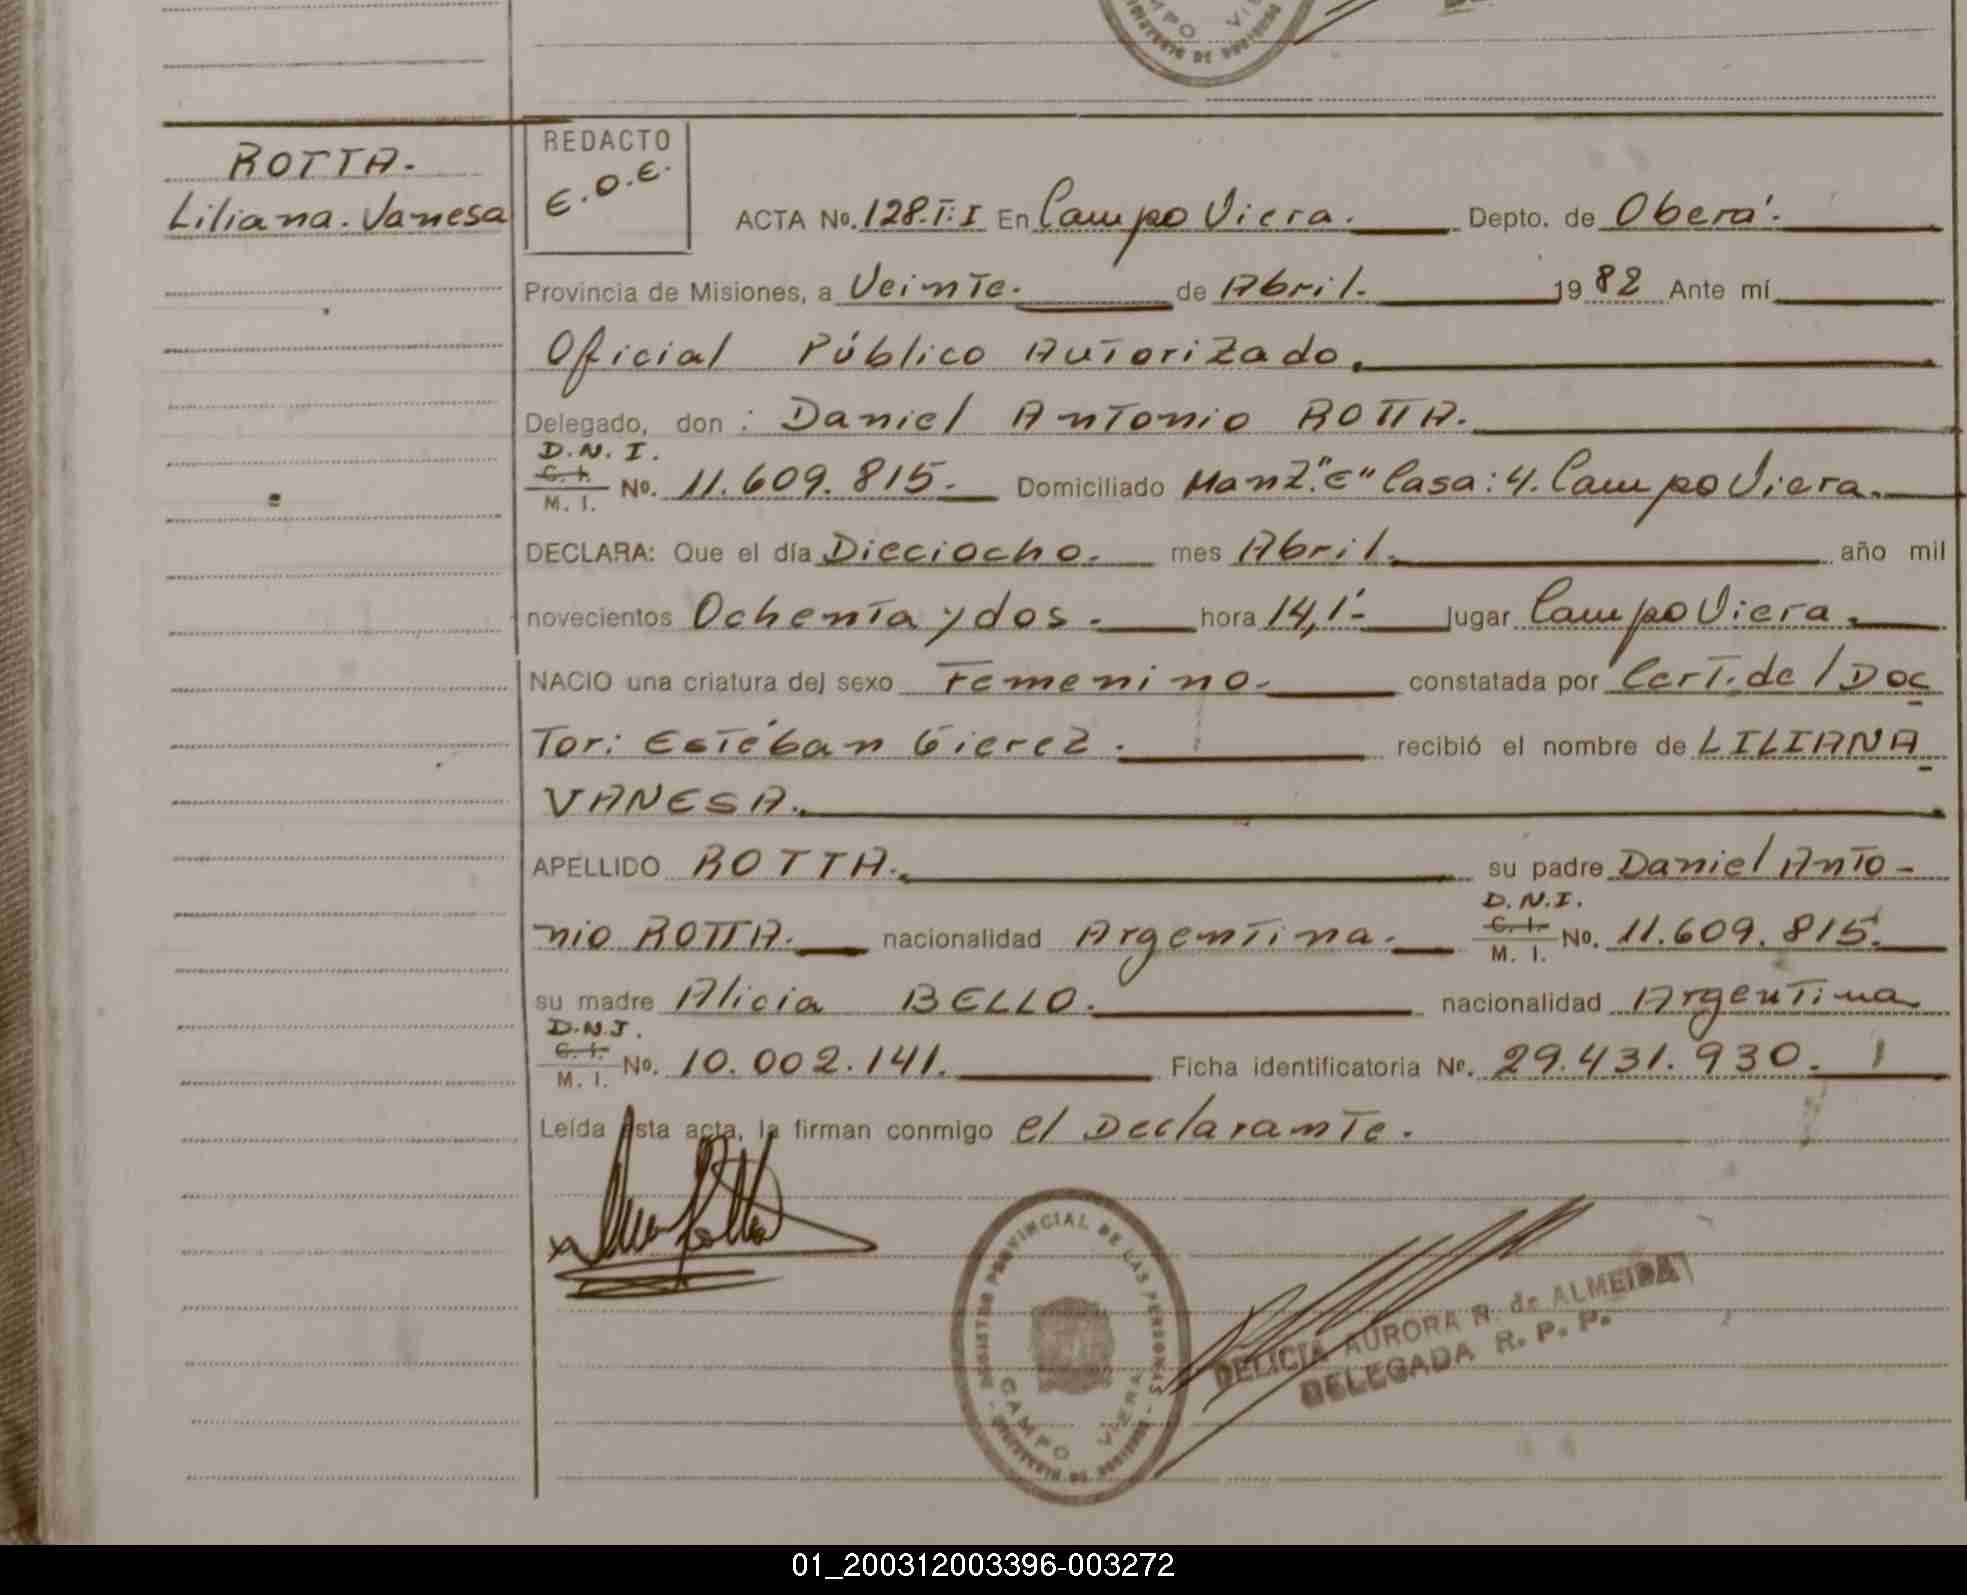 ROTTA.
Liliana. Vanesa
REDACTO
E.O.E.
ACTA No. 128.T:I En Campo Viera. Depto. de Oberá.
Provincia de Misiones, a Veinte. de Abril. 1982 Ante mí
Oficial Público Autorizado.
Delegado, don : Daniel Antonio ROTTA.
D.N.I.
C. I.
M. I. No. 11.609.815. Domiciliado Manz."E" Casa: 4. Campo Viera.
DECLARA: Que el día Dieciocho. mes Abril. año mil
novecientos Ochenta y dos. hora 14,1'- lugar Campo Viera.
NACIO una criatura del sexo Femenino. constatada por Cert. de / Doc
Tor: Estéban Gierez. recibió el nombre de LILIANA
VANESA.
APELLIDO ROTTA. su padre Daniel Anto-
D.N.I.
nio ROTTA. nacionalidad Argentina. C. I. M. I. No. 11.609.815.
su madre Alicia BELLO. nacionalidad Argentina
D.N.I.
C. I.
M. I. No. 10.002.141. Ficha identificatoria No. 29.431.930.
Leída esta acta, la firman conmigo el Declarante.
REGISTRO PROVINCIAL DE LAS PERSONAS
CAMPO VIERA
DELICIA AURORA R. de ALMEIDA
DELEGADA R. P. P.
01_200312003396-003272